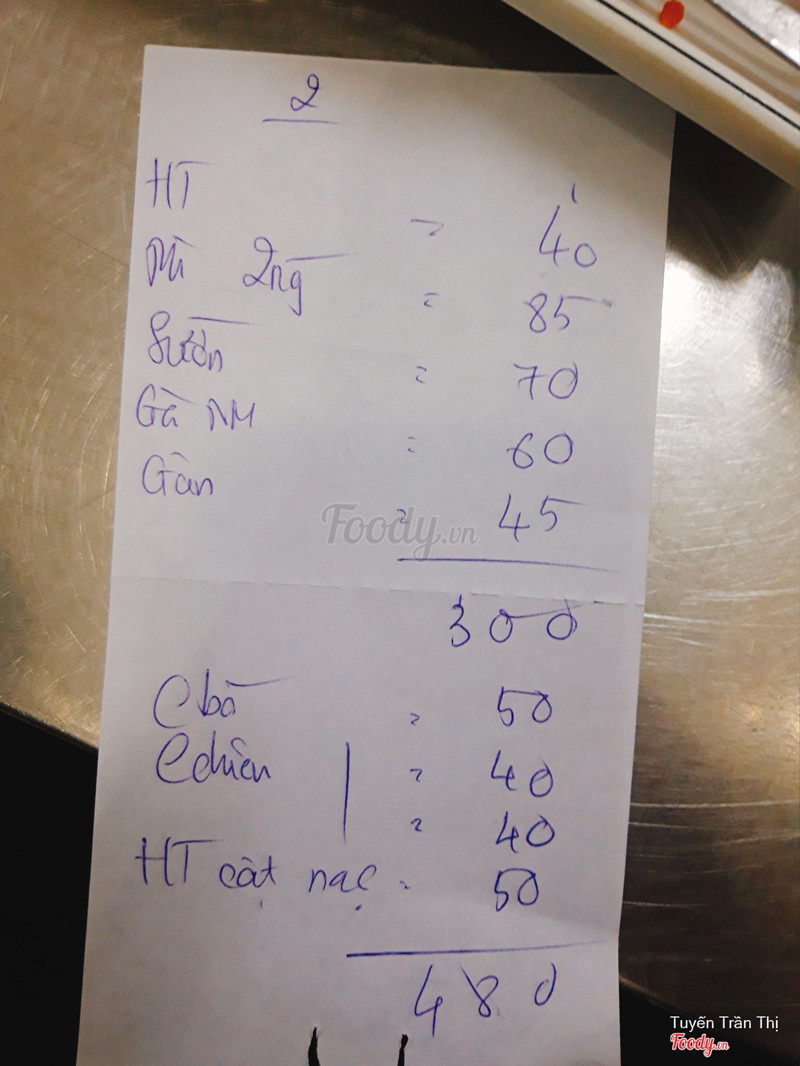 2
HT = 40
Mì 2ng = 85
Sườn = 70
Gà NM = 60
Gân = 45
300
C bò = 50
C chiên = 40
= 40
HT cật nạc = 50
480
Foody.vn
Tuyến Trần Thị
Foody.vn